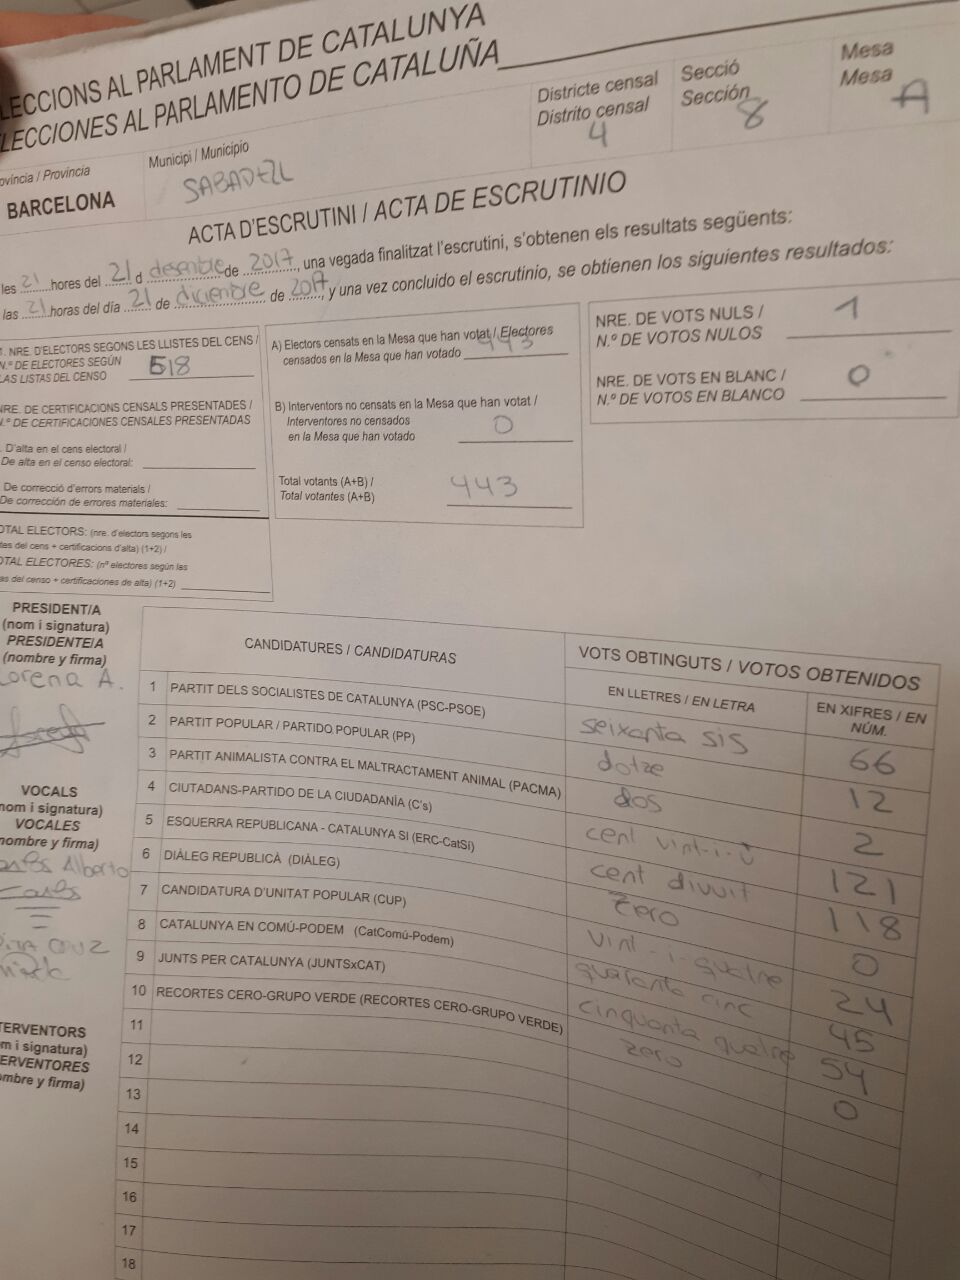 LECCIONS AL PARLAMENT DE CATALUNYA
LECCIONES AL PARLAMENTO DE CATALUÑA
ovíncia / Provincia
BARCELONA
Municipi / Municipio
SABADELL
Districte censal
Distrito censal
4
Secció
Sección
8
Mesa
Mesa
A
ACTA D'ESCRUTINI / ACTA DE ESCRUTINIO
les 21 hores del 21 d desembre de 2017, una vegada finalitzat l'escrutini, s'obtenen els resultats següents:
las 21 horas del día 21 de diciembre de 2017, y una vez concluido el escrutinio, se obtienen los siguientes resultados:
1. NRE. D'ELECTORS SEGONS LES LLISTES DEL CENS /
N.º DE ELECTORES SEGÚN
LAS LISTAS DEL CENSO
518
NRE. DE CERTIFICACIONS CENSALS PRESENTADES /
N.º DE CERTIFICACIONES CENSALES PRESENTADAS
D'alta en el cens electoral /
De alta en el censo electoral:
De correcció d'errors materials /
De corrección de errores materiales:
OTAL ELECTORS: (nre. d'electors segons les
tes del cens + certificacions d'alta) (1+2) /
OTAL ELECTORES: (nº electores según las
as del censo + certificaciones de alta) (1+2)
A) Electors censats en la Mesa que han votat / Electores
censados en la Mesa que han votado 443
B) Interventors no censats en la Mesa que han votat /
Interventores no censados
en la Mesa que han votado 0
Total votants (A+B) /
Total votantes (A+B) 443
NRE. DE VOTS NULS /
N.º DE VOTOS NULOS 1
NRE. DE VOTS EN BLANC /
N.º DE VOTOS EN BLANCO 0
PRESIDENT/A
(nom i signatura)
PRESIDENTE/A
(nombre y firma)
Lorena A.
VOCALS
nom i signatura)
VOCALES
nombre y firma)
Alberto
Carles
CRUZ
TERVENTORS
m i signatura)
ERVENTORES
ombre y firma)
CANDIDATURES / CANDIDATURAS
VOTS OBTINGUTS / VOTOS OBTENIDOS
EN LLETRES / EN LETRA
EN XIFRES / EN NÚM.
1 PARTIT DELS SOCIALISTES DE CATALUNYA (PSC-PSOE) seixanta sis 66
2 PARTIT POPULAR / PARTIDO POPULAR (PP) dotze 12
3 PARTIT ANIMALISTA CONTRA EL MALTRACTAMENT ANIMAL (PACMA) dos 2
4 CIUTADANS-PARTIDO DE LA CIUDADANÍA (C's) cent vint-i-ú 121
5 ESQUERRA REPUBLICANA - CATALUNYA SI (ERC-CatSí) cent divuit 118
6 DIÀLEG REPUBLICÀ (DIÀLEG) zero 0
7 CANDIDATURA D'UNITAT POPULAR (CUP) vint-i-quatre 24
8 CATALUNYA EN COMÚ-PODEM (CatComú-Podem) quaranta cinc 45
9 JUNTS PER CATALUNYA (JUNTSxCAT) cinquanta quatre 54
10 RECORTES CERO-GRUPO VERDE (RECORTES CERO-GRUPO VERDE) zero 0
11
12
13
14
15
16
17
18